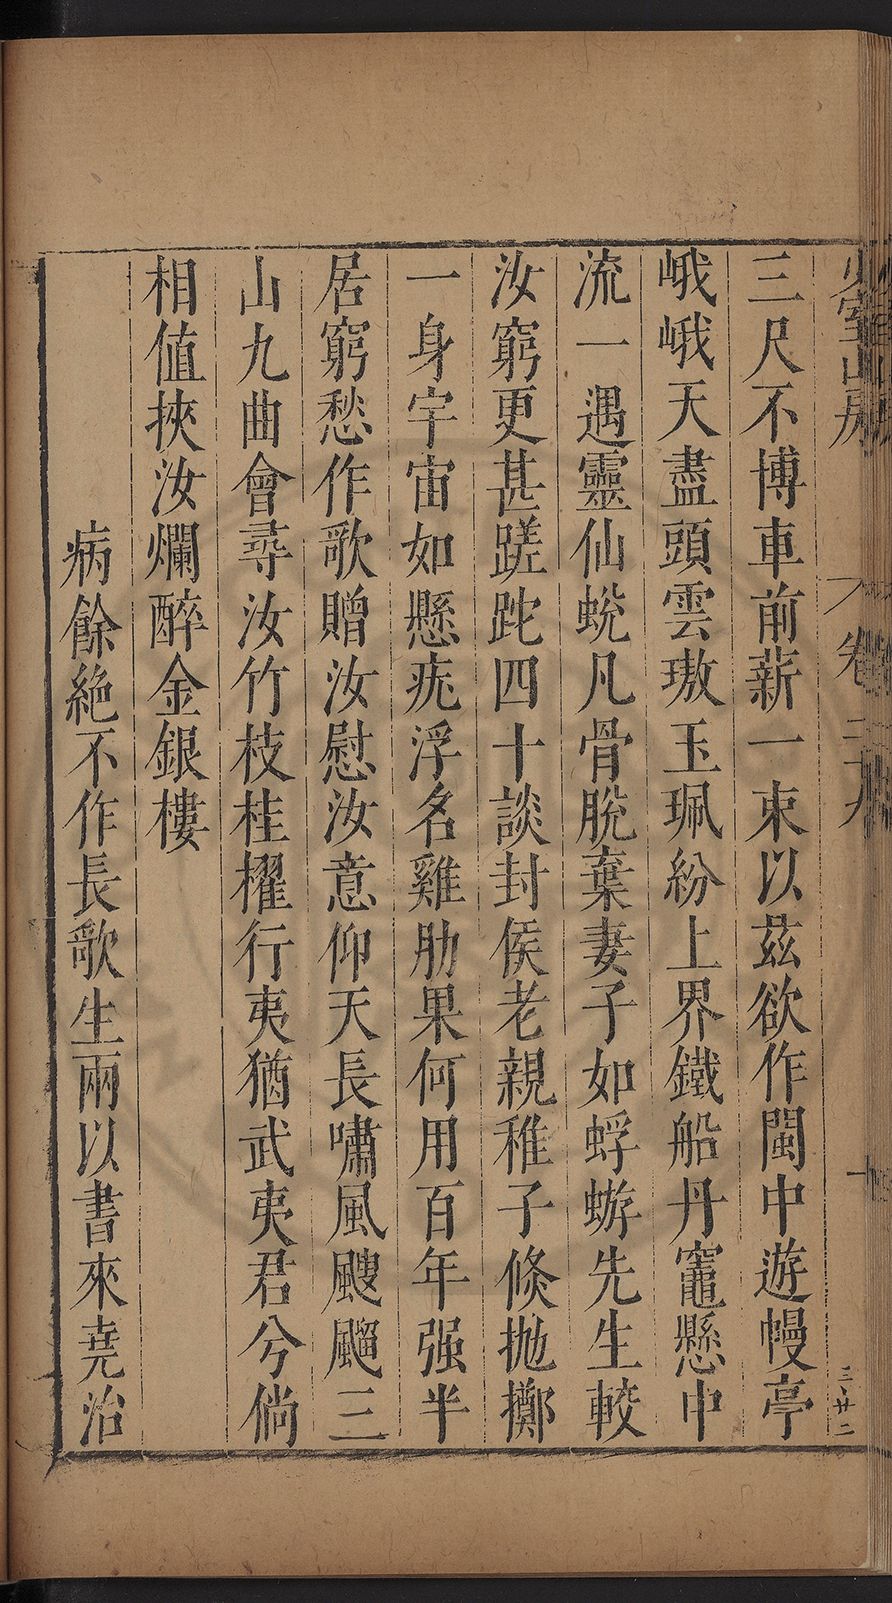 少室山房
卷二十九
十
三、廿二
三尺不博車前薪一束以茲欲作閩中遊幔亭
峨峨天盡頭雲璈玉珮紛上界鐵船丹竈懸中
流一遇靈仙蛻凡骨脫棄妻子如蜉蝣先生較
汝窮更甚蹉跎四十談封侯老親稚子倐拋擲
一身宇宙如懸疣浮名雞肋果何用百年强半
居窮愁作歌贈汝慰汝意仰天長嘯風颼飀三
山九曲會尋汝竹枝桂櫂行夷猶武夷君兮倘
相値挾汝爛醉金銀樓
病餘絶不作長歌生兩以書來堯治